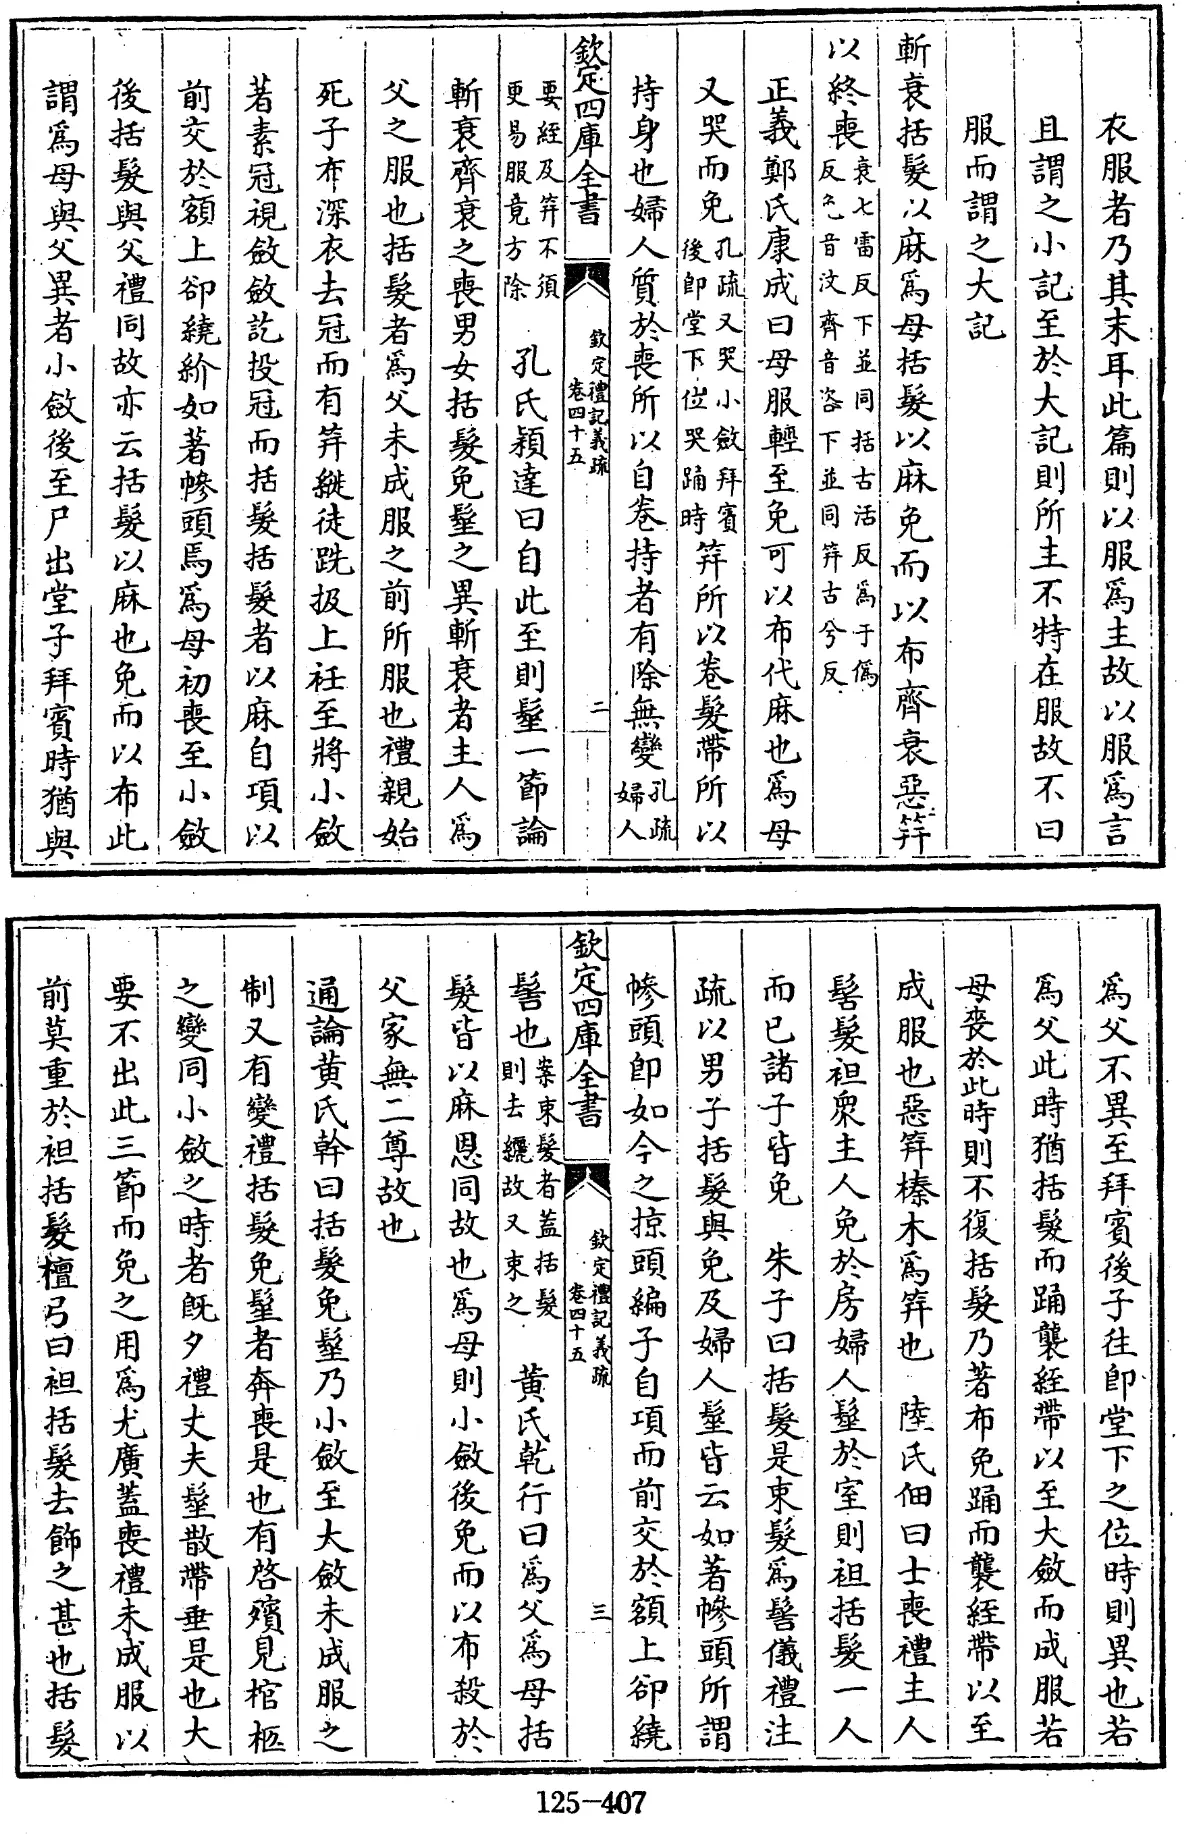 衣服者乃其末耳此篇則以服爲主故以服爲言
且謂之小記至於大記則所主不特在服故不曰
服而謂之大記
斬衰括髮以麻爲母括髮以麻免而以布齊衰惡笄
以終喪衰七雷反下並同括古活反爲于僞
反免音汶齊音咨下並同笄古兮反
正義鄭氏康成曰母服輕至免可以布代麻也爲母
又哭而免孔疏又哭小斂拜賓
後卽堂下位哭踊時笄所以卷髮帶所以
持身也婦人質於喪所以自卷持者有除無變孔疏
婦人
欽定四庫全書
欽定禮記義疏
卷四十五
二
要絰及笄不須
更易服竟方除 孔氏穎達曰自此至則髽一節論
斬衰齊衰之喪男女括髮免髽之異斬衰者主人爲
父之服也括髮者爲父未成服之前所服也禮親始
死子布深衣去冠而有笄縰徒跣扱上衽至將小斂
著素冠視斂斂訖投冠而括髮括髮者以麻自項以
前交於額上卻繞紒如著幓頭焉爲母初喪至小斂
後括髮與父禮同故亦云括髮以麻也免而以布此
謂爲母與父異者小斂後至尸出堂子拜賓時猶與
爲父不異至拜賓後子往卽堂下之位時則異也若
爲父此時猶括髮而踊襲絰帶以至大斂而成服若
母喪於此時則不復括髮乃著布免踊而襲絰帶以至
成服也惡笄榛木爲笄也 陸氏佃曰士喪禮主人
髺髮袒衆主人免於房婦人髽於室則袒括髮一人
而已諸子皆免 朱子曰括髮是束髮爲髻儀禮注
疏以男子括髮與免及婦人髽皆云如著幓頭所謂
幓頭卽如今之掠頭編子自項而前交於額上卻繞
欽定四庫全書
欽定禮記義疏
卷四十五
三
髻也案束髮者蓋括髮
則去纚故又束之 黄氏乾行曰爲父爲母括
髮皆以麻恩同故也爲母則小斂後免而以布殺於
父家無二尊故也
通論黄氏幹曰括髮免髽乃小斂至大斂未成服之
制又有變禮括髮免髽者奔喪是也有啓殯見棺柩
之變同小斂之時者旣夕禮丈夫髽散帶垂是也大
要不出此三節而免之用爲尤廣蓋喪禮未成服以
前莫重於袒括髮檀弓曰袒括髮去飾之甚也括髮
125-407